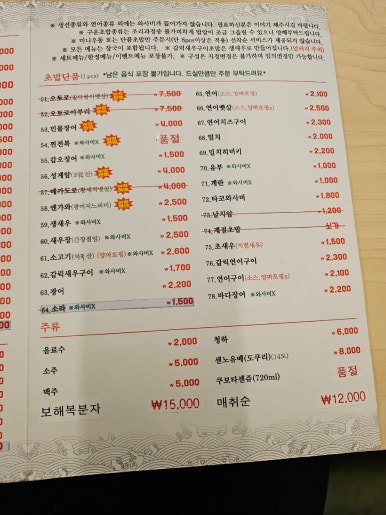 ※ 생선종류와 연어종류 외에는 와사비가 들어가지 않습니다. 필요하신분은 이야기 해주시길 바랍니다.
※ 구운초밥종류는 조리과정상 불가피하게 밥알이 조금 그을릴 수 있으니 양해부탁드립니다.
※ 모든 메뉴는 장국이 포함됩니다. ※ 갈릭새우구이초밥은 생새우로 만들어집니다.
※ 세트메뉴/한정메뉴/이벤트메뉴 포장불가. ※ 구성은 지정변경은 불가하며 임의변경만 가능합니다.
초밥단품 (1 pcs) *남은 음식 포장 불가입니다. 드실만큼만 주문 부탁드려요*
51. 오토로 ₩7,500
52. 오토로아부리 ₩7,500
53. 민물장어 ₩4,000
54. 찐전복 ※와사비X 품절
55. 감오징어 ₩1,500
56. 성게알 ₩4,000
57. 메카도로 ₩4,000
58. 엔가와(광어지느러미) ₩2,500
59. 생새우 ※와사비X ₩1,500
60. 새우장(간장절임) ※와사비X ₩2,600
61. 소고기 ※와사비X ₩2,600
62. 갈릭새우구이 ※와사비X ₩1,700
63. 광어 ₩2,200
64. 소라 ※와사비X ₩1,500
65. 연어(소스,양파토핑) ₩2,100
66. 연어뱃살(소스,양파토핑o) ₩2,500
67. 연어치즈구이 ₩2,300
68. 밀치 ₩2,000
69. 밀치히비키 ₩2,200
70. 유부 ※와사비X ₩1,100
71. 계란 ※와사비X ₩1,100
72. 타코와사비 ₩1,800
73. 날치알 ₩1,200
74. 제철초밥 싯가
75. 초새우(익힌새우) ₩1,500
76. 갈릭연어구이 ₩2,300
77. 연어구이(소스,양파토핑x) ₩2,100
78. 바다장어 ※와사비X ₩2,200
주류
음료수 ₩2,000
소주 ₩5,000
맥주 ₩5,000
보해복분자 ₩15,000
청하 ₩6,000
센노유메(도쿠리)(14도) ₩8,000
쿠보타센쥬(720ml) 품절
매취순 ₩12,000